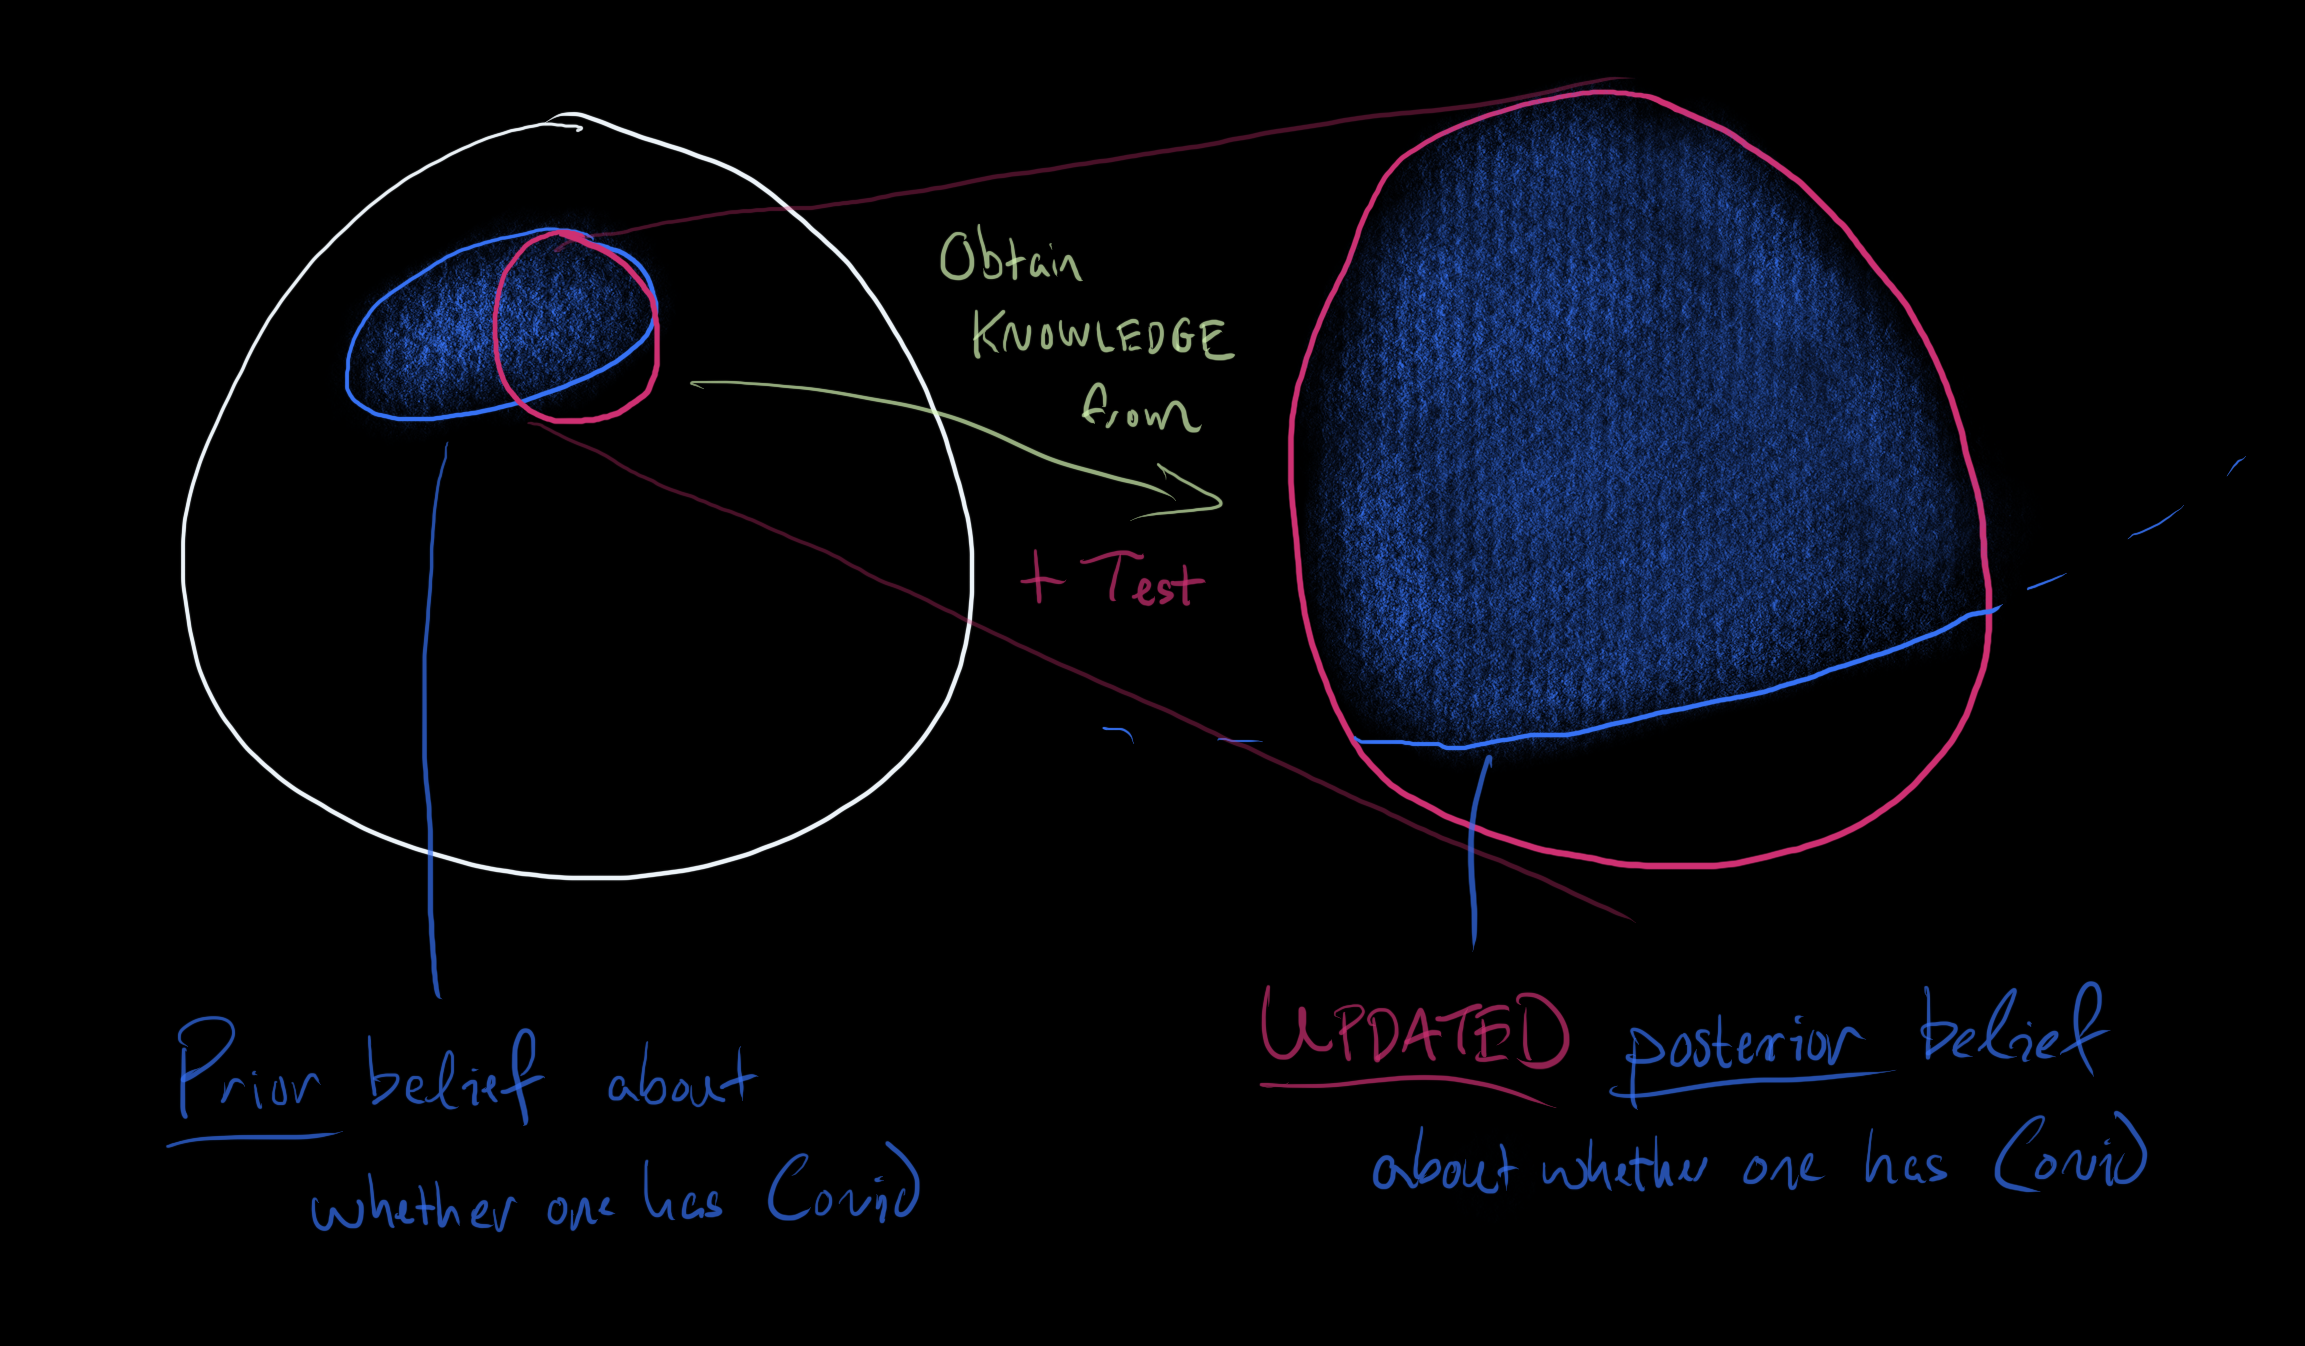 Obtain
KNOWLEDGE
from
+ Test
Prior belief about
whether one has Covid
UPDATED posterior belief
about whether one has Covid